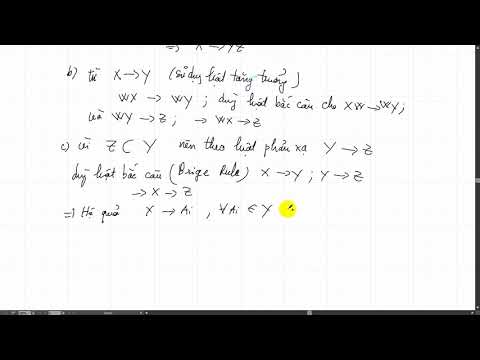 ⇒ X → YZ
b) từ X → Y (sử dụng luật tăng trưởng)
WX → WY ; dùng luật bắc cầu cho XW → WY;
và WY → Z ; → WX → Z
c) vì Z ⊂ Y nên theo luật phản xạ Y → Z
dùng luật bắc cầu (Brige Rule) X → Y ; Y → Z
→ X → Z
⇒ Hệ quả X → Ai , ∀Ai ∈ Y